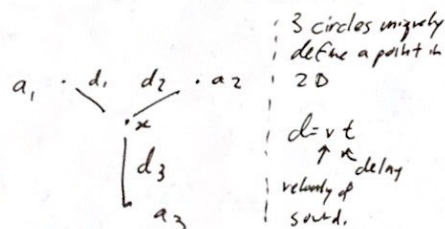 a₁ d₁ d₂ a₂
x
d₃
a₃
3 circles uniquely
define a point in
2D
d=vt
delay
velocity of
sound.